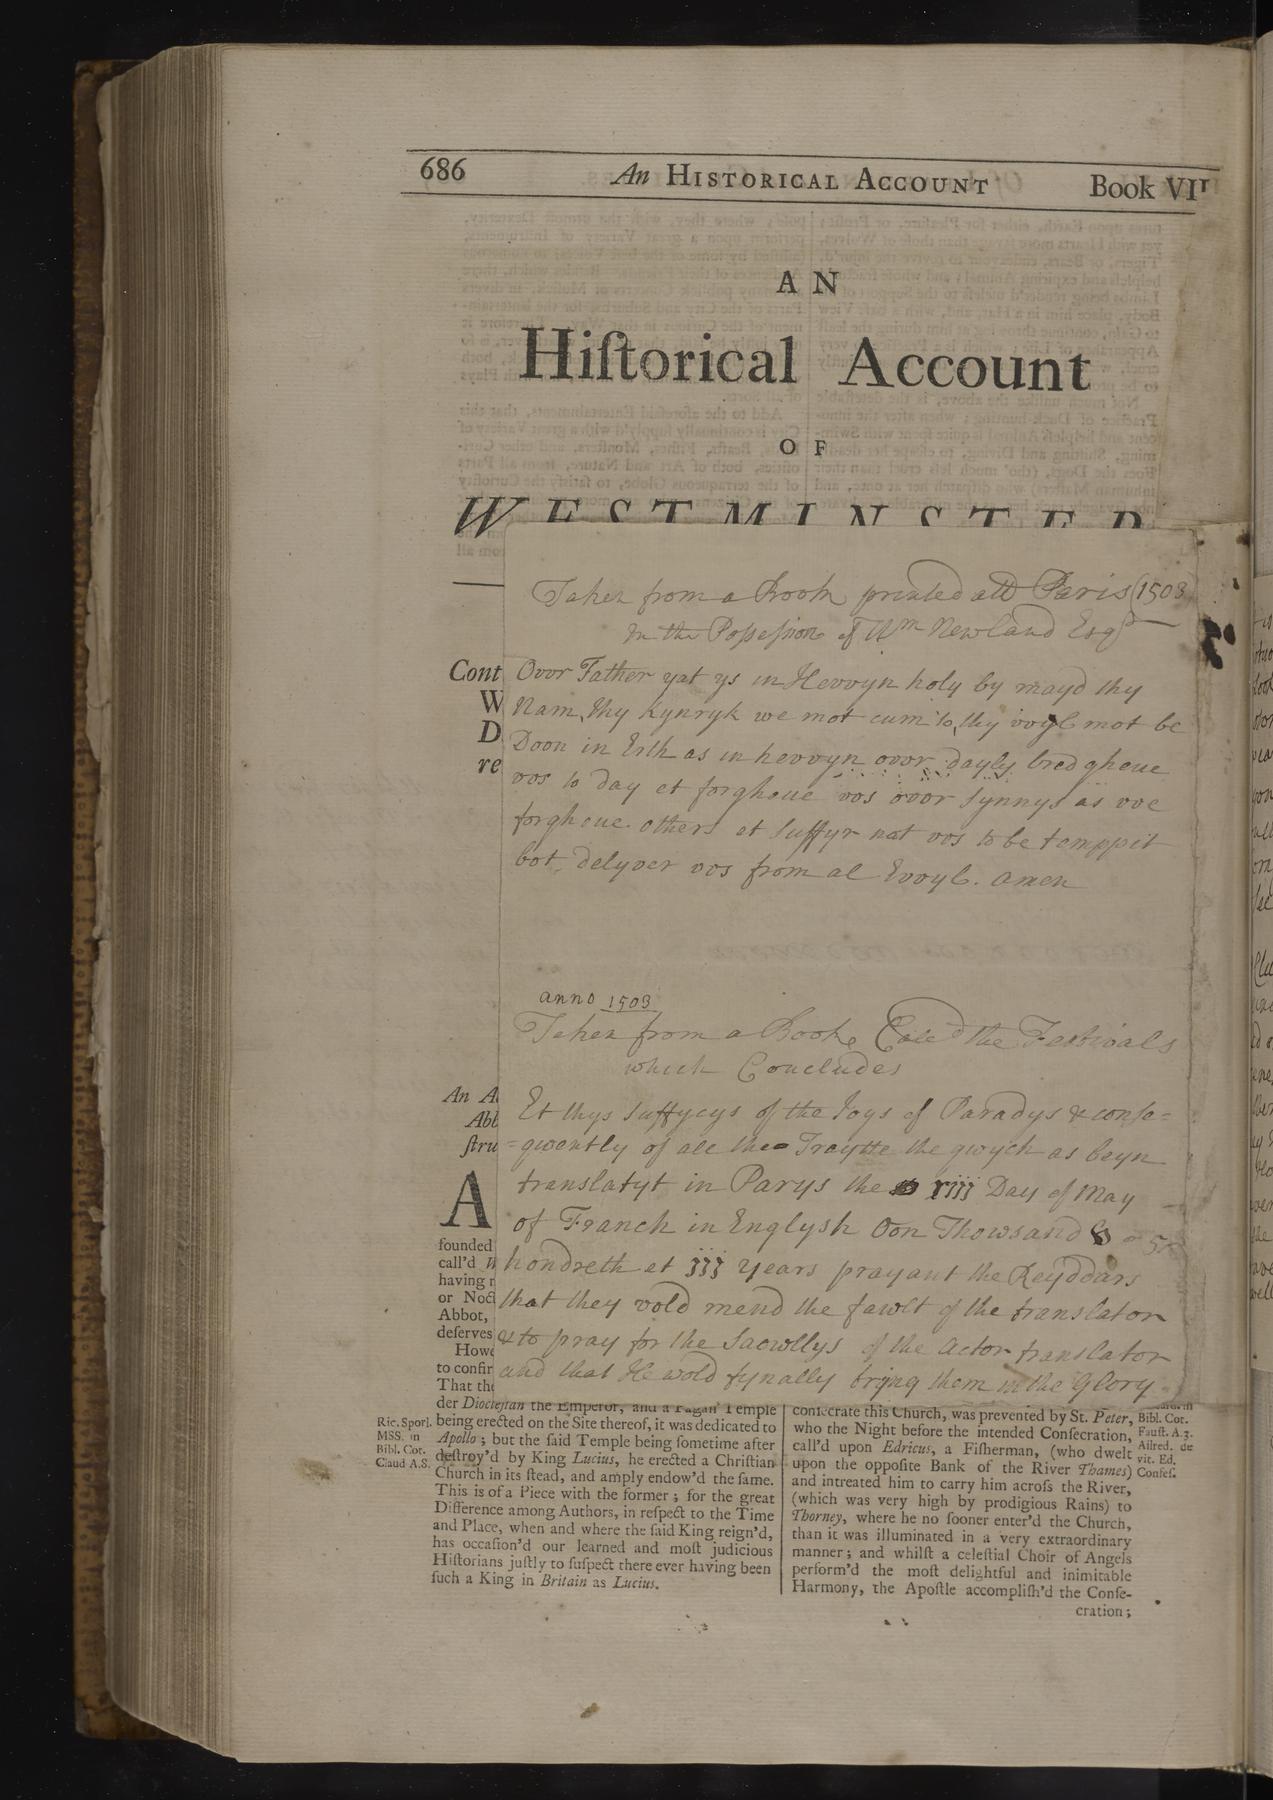 686 An HISTORICAL ACCOUNT Book VII
AN
Hiſtorical Account
OF
WESTMINSTER
Taken from a Book printed att Paris (1503
In the Poſseſsion of Wm Newland Esqr
Ovor Father yat ys in Hevvyn holy by mayd thy
Nam, thy Kynryk we mot cum to, thy vvyl mot be
Doon in Erth as in hevvyn ovor dayly bred gheue
vos to day et forgheue vos ovor synnys as vve
forgheue others et suffyr not vos to be temppit
bot delyver vos from al Evvyl. Amen
anno 1503
Taken from a Booke Call'd the Festivals
which Concludes
Et thys suffycys of the Joys of Paradys & conse=
=qwently of all the Traytte the qwych as beyn
translatyt in Parys the xiij Day of May
of Franch in Englysh Oon Thowsand 5
hondreth et jjj Years prayant the Reyddars
that they vold mend the fawlt of the translator
& to pray for the Saowllys of the Actor translator
and that He wold fynally bryng them in the Glory
Cont
W
D
re
An A
Abb
ſtru
A
founded
call'd
having
or Noct
Abbot,
deserves
Howe
to confir
That the
der Diocleſian the Emperor, and a Pagan Temple
being erected on the Site thereof, it was dedicated to
Apollo; but the ſaid Temple being ſometime after
deſtroy'd by King Lucius, he erected a Chriſtian
Church in its ſtead, and amply endow'd the ſame.
This is of a Piece with the former; for the great
Difference among Authors, in reſpect to the Time
and Place, when and where the ſaid King reign'd,
has occaſion'd our learned and moſt judicious
Hiſtorians juſtly to ſuſpect there ever having been
ſuch a King in Britain as Lucius.
Ric. Sporl.
MSS. in
Bibl. Cot.
Claud A.S.
conſecrate this Church, was prevented by St. Peter,
who the Night before the intended Conſecration,
call'd upon Edricus, a Fiſherman, (who dwelt
upon the oppoſite Bank of the River Thames)
and intreated him to carry him acroſs the River,
(which was very high by prodigious Rains) to
Thorney, where he no ſooner enter'd the Church,
than it was illuminated in a very extraordinary
manner; and whilſt a celeſtial Choir of Angels
perform'd the moſt delightful and inimitable
Harmony, the Apoſtle accompliſh'd the Conſe-
cration;
Bibl. Cot.
Fauſt. A.3.
Ailred. de
vit. Ed.
Confeſ.